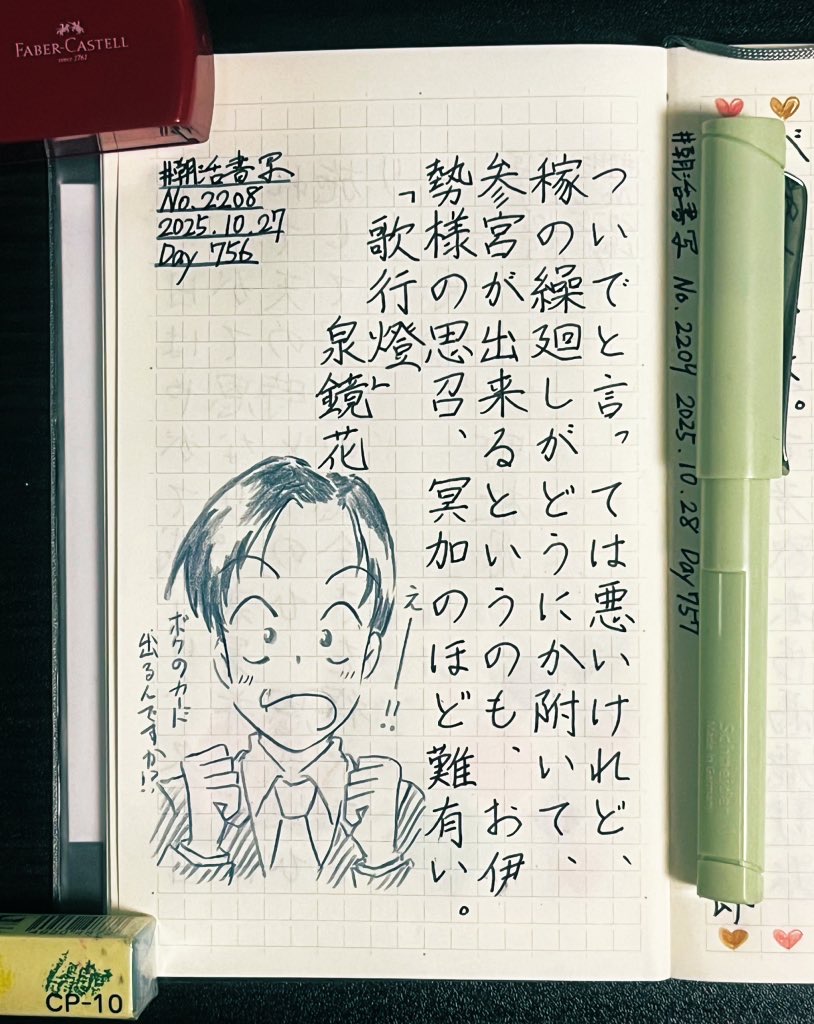 FABER-CASTELL
since 1761
#朝活書写
No.2208
2025.10.27
Day 756
ついでと言っては悪いけれど、
稼の繰廻しがどうにか附いて、
参宮が出来るというのも、お伊
勢様の思召、冥加のほど難有い。
「歌行燈」
泉鏡花
えー!!
ボクのカード
出るんですか!?
#朝活書写 No.2209 2025.10.28 Day 757
Schneider
Made in Germany
CP-10